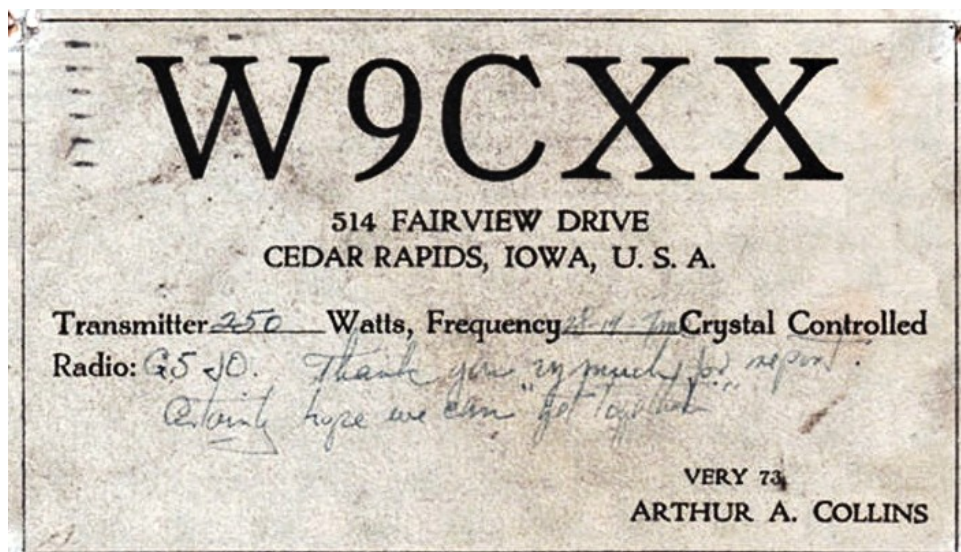 W9CXX
514 FAIRVIEW DRIVE
CEDAR RAPIDS, IOWA, U. S. A.
Transmitter 250 Watts, Frequency Crystal Controlled
Radio: G5 JO. Thank you very much for report.
Certainly hope we can "get together"
VERY 73,
ARTHUR A. COLLINS